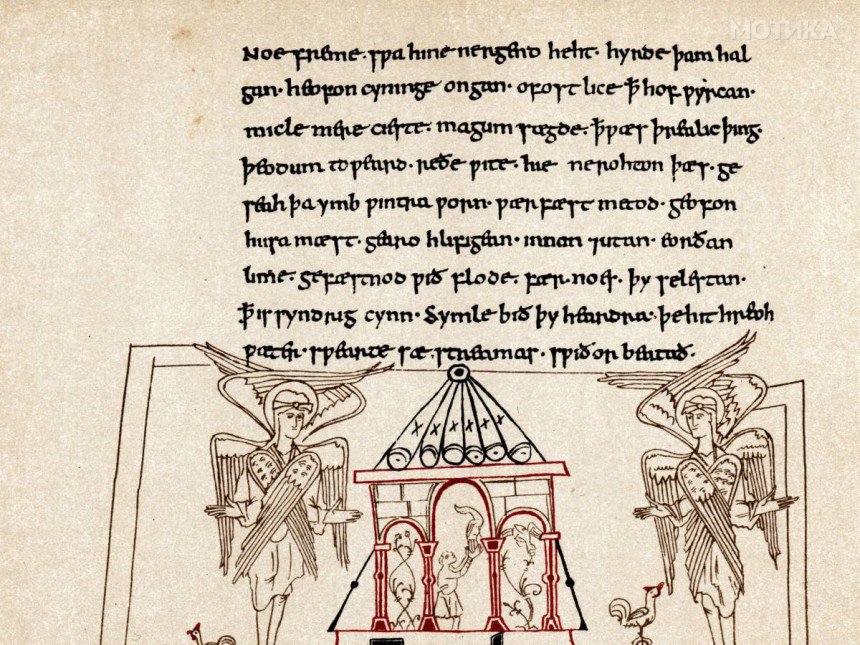 МОТИКА
Noe freme. sƿa hine nergend heht. hyrde þam hal
gan. heofon cyninge ongan. ofost lice ꝥ hof ƿyrcan.
micle mere cieste. magum sægde. ꝥ ƿæs þrealic þing.
þeodum toƿeard. reðe ƿite. hie ne rohton þæs. ge
seah þa ymb ƿintra ƿorn. ƿær fæst metod. geofon
husa mæst. gearo hlifigean. innan ⁊utan. eorðan
lime. gefæstnod ƿið flode. fær. noes. þy selestan.
ꝥ is syndrig cynn. Symle bið þy heardra. þe hit hreoh
ƿæter. sƿearte sæ. streamas. sƿiðor beatað.